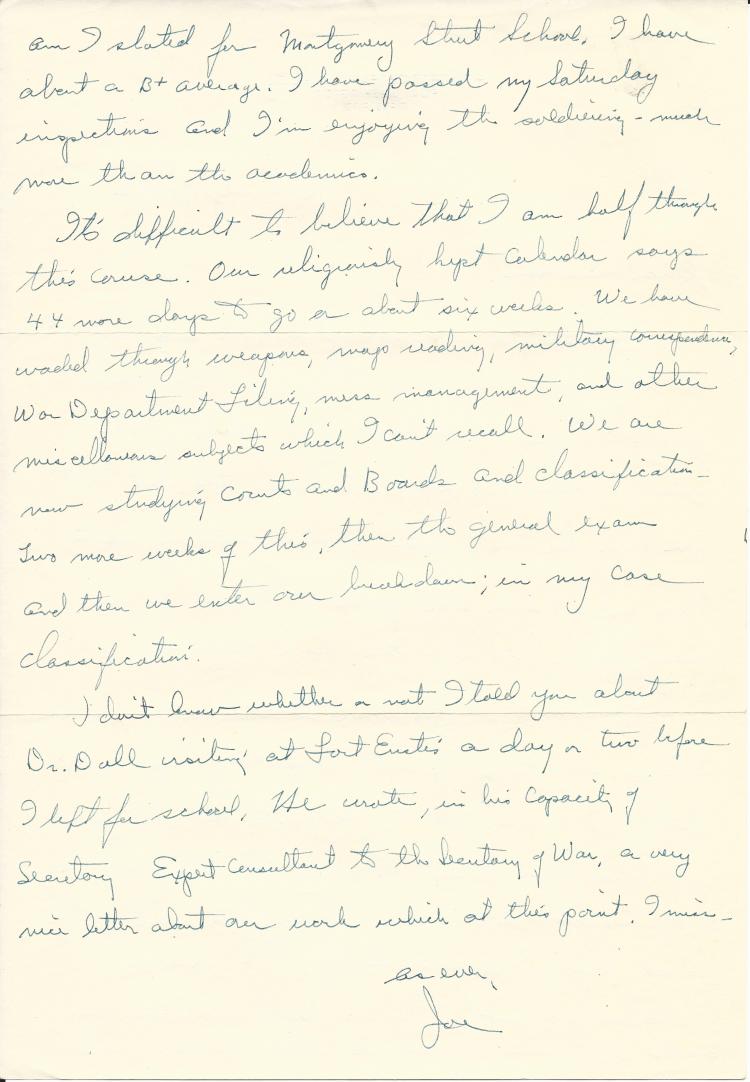 am I slated for Montgomery Street School. I have
about a B+ average. I have passed my Saturday
inspections and I'm enjoying the soldiering - much
more than the academics.
It's difficult to believe that I am half through
this course. Our religiously kept calendar says
44 more days to go or about six weeks. We have
waded through weapons, map reading, military correspondence,
War Department Filing, mess management, and other
miscellaneous subjects which I can't recall. We are
now studying Courts and Boards and classification -
Two more weeks of this, then the general exam
and then we enter our breakdown; in my case
classification.
I don't know whether or not I told you about
Dr. Dall visiting at Fort Eustis a day or two before
I left for school. He wrote, in his capacity of
Secretary Expert Consultant to the Secretary of War, a very
nice letter about our work which at this point, I miss -
as ever,
Joe